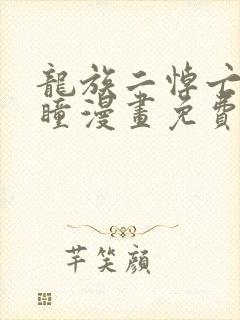 龍族二悼亡
瞳漫畫免費
芊笑顔